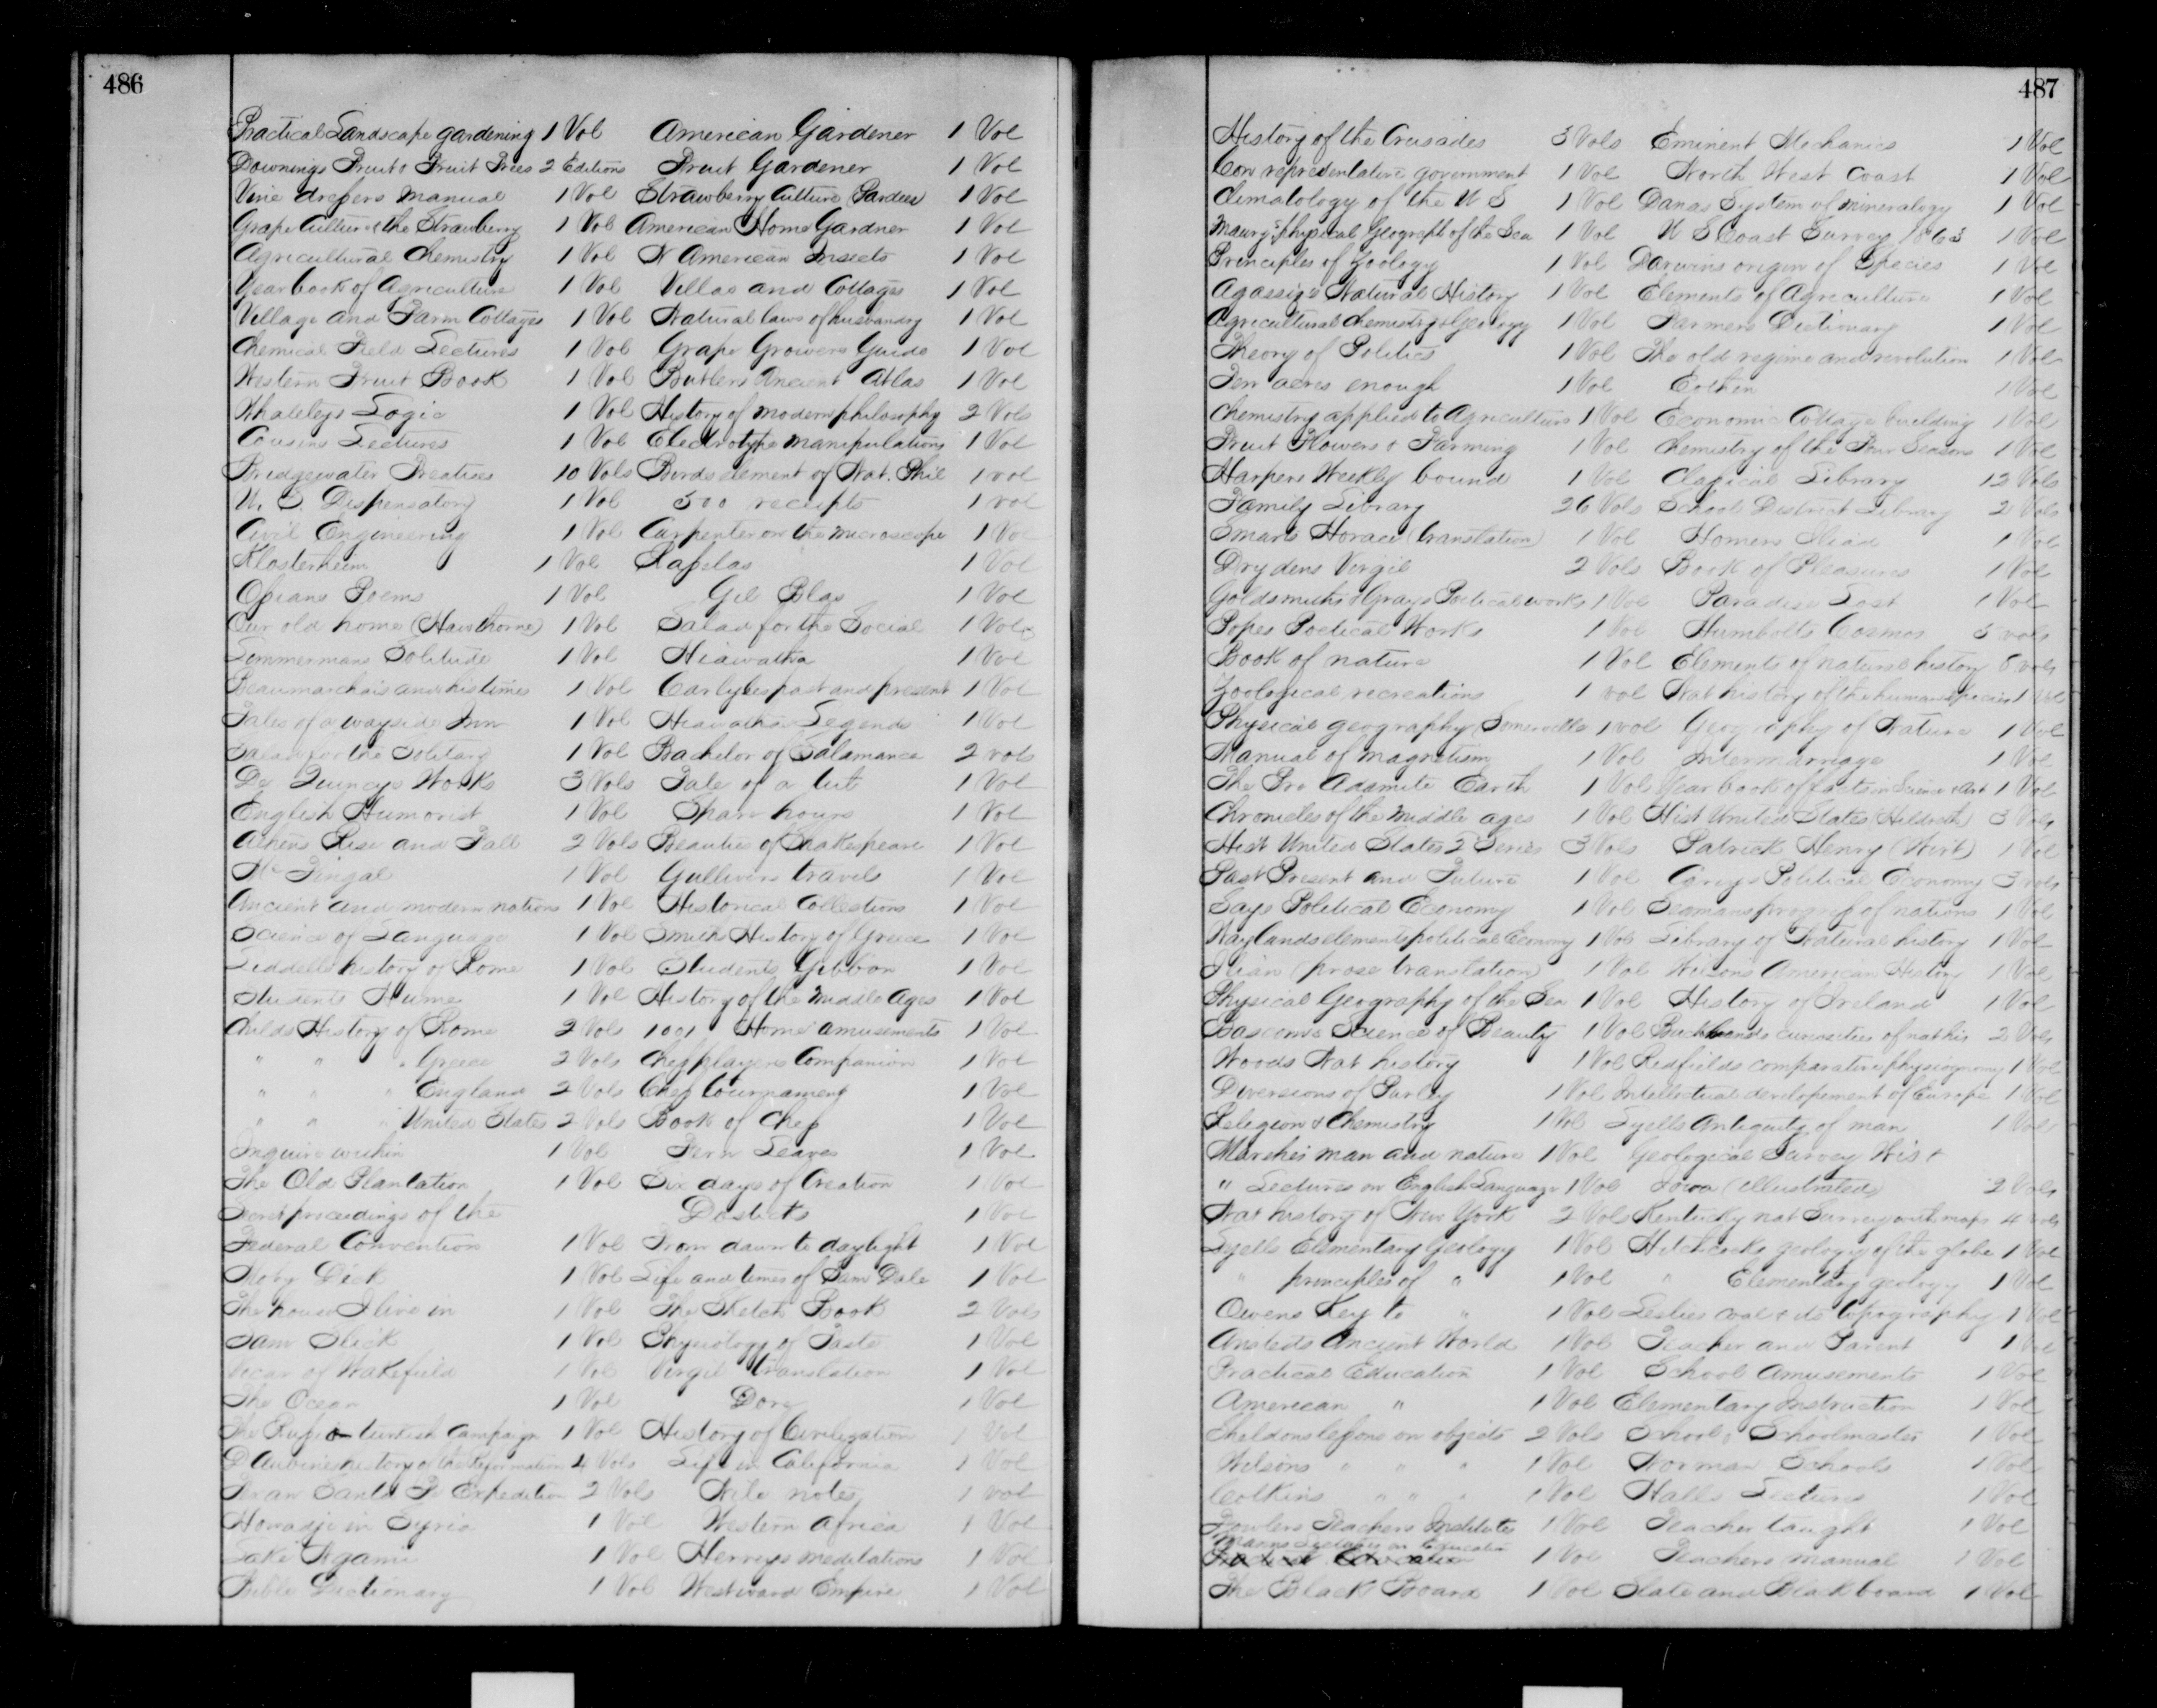 486
Practical Landscape gardening 1 Vol American Gardener 1 Vol
Downings Fruit & Fruit Trees 2 Editions Fruit Gardener 1 Vol
Vine dressers manual 1 Vol Strawberry Culture (Pardee) 1 Vol
Grape Culture & the Strawberry 1 Vol American Home Gardner 1 Vol
Agricultural Chemistry 1 Vol N American Insects 1 Vol
Year book of Agriculture 1 Vol Villas and Cottages 1 Vol
Village and Farm Cottages 1 Vol Natural laws of husbandry 1 Vol
Chemical Field Lectures 1 Vol Grape Growers Guide 1 Vol
Western Fruit Book 1 Vol Butlers Ancient Atlas 1 Vol
Whateleys Logic 1 Vol History of modern philosophy 2 Vols
Cousins Lectures 1 Vol Electrotype manipulations 1 Vol
Bridgewater Treatises 10 Vols Birds element of Nat. Phil 1 vol
U. S. Dispensatory 1 Vol 500 receipts 1 vol
Civil Engineering 1 Vol Carpenter on the microscope 1 Vol
Klosterheim 1 Vol Rasselas 1 Vol
Ossians Poems 1 Vol Gil Blas 1 Vol
Our old home (Hawthorne) 1 Vol Salad for the Social 1 Vol
Zimmermans Solitude 1 Vol Hiawatha 1 Vol
Beaumarchais and his times 1 Vol Carlyles past and present 1 Vol
Tales of a wayside Inn 1 Vol Hiawatha Legends 1 Vol
Salad for the Solitary 1 Vol Bachelor of Salamanca 2 vols
De Quinceys Works 3 Vols Tale of a tub 1 Vol
English Humorist 1 Vol Spare hours 1 Vol
Athens Rise and Fall 2 Vols Beauties of Shakespeare 1 Vol
McFingal 1 Vol Gullivers travels 1 Vol
Ancient and modern nations 1 Vol Historical Collections 1 Vol
Science of Language 1 Vol Smiths History of Greece 1 Vol
Liddells history of Rome 1 Vol Students Gibbon 1 Vol
Students Hume 1 Vol History of the Middle Ages 1 Vol
Childs History of Rome 2 Vols 1001 Home amusements 1 Vol
" " " Greece 2 Vols Chessplayers Companion 1 Vol
" " " England 2 Vols Chess tournament 1 Vol
" " " United States 2 Vols Book of Chess 1 Vol
Inquire within 1 Vol Fern Leaves 1 Vol
The Old Plantation 1 Vol Six days of Creation 1 Vol
Secret proceedings of the Dostets 1 Vol
Federal Convention 1 Vol From dawn to daylight 1 Vol
Moby Dick 1 Vol Life and times of Sam Dale 1 Vol
The house I live in 1 Vol The Sketch Book 2 Vols
Sam Slick 1 Vol Physiology of Taste 1 Vol
Vicar of Wakefield 1 Vol Virgil translation 1 Vol
The Ocean 1 Vol Dore 1 Vol
The Russo turkish Campaign 1 Vol History of Civilization 1 Vol
D Aubines history of the Reformation 4 Vols Life in California 1 Vol
Texan Santa Fe Expedition 2 Vols Nile notes 1 vol
Howadji in Syria 1 Vol Western Africa 1 Vol
Lake Ngami 1 Vol Herveys meditations 1 Vol
Bible Dictionary 1 Vol Westward Empire 1 Vol
487
History of the Crusades 3 Vols Eminent Mechanics 1 Vol
Con representative government 1 Vol North West Coast 1 Vol
Climatology of the U S 1 Vol Danas System of mineralogy 1 Vol
Maurys physical geograph of the Sea 1 Vol U S Coast Survey 1863 1 Vol
Principles of Zoology 1 Vol Darwins origin of Species 1 Vol
Agassizs Natural History 1 Vol Elements of Agriculture 1 Vol
Agricultural chemistry & Geology 1 Vol Farmers Dictionary 1 Vol
Theory of Politics 1 Vol The old regime and revolution 1 Vol
Ten acres enough 1 Vol Eothen 1 Vol
Chemistry applied to Agriculture 1 Vol Economic Cottage building 1 Vol
Fruit Flowers & Farming 1 Vol Chemistry of the Four Seasons 1 Vol
Harpers Weekly bound 1 Vol Classical Library 12 Vols
Family Library 26 Vols School District Library 2 Vols
Smarts Horace (translation) 1 Vol Homers Iliad 1 Vol
Drydens Virgil 2 Vols Book of Pleasures 1 Vol
Goldsmiths & Grays Poetical works 1 Vol Paradise Lost 1 Vol
Popes Poetical Works 1 Vol Humbolts Cosmos 5 vols
Book of nature 1 Vol Elements of natural history vols
Zoological recreations 1 vol Nat history of the human species 1 Vol
Physical geography (Somerville 1 vol Geography of Nature 1 Vol
Manual of magnetism 1 Vol Intermarriage 1 Vol
The Pre Adamite Earth 1 Vol Year book of facts in Science & Art 1 Vol
Chronicles of the middle ages 1 Vol Hist United States (Hildreth) 3 Vols
Hist United States 2 Series 3 Vols Patrick Henry (Wirt) 1 Vol
Past Present and Future 1 Vol Careys Political Economy 3 vols
Says Political Economy 1 Vol Seamans progress of nations 1 Vol
Waylands elements political Economy 1 Vol Library of Natural history 1 Vol
Iliad (prose translation) 1 Vol Wilsons American History 1 Vol
Physical Geography of the Sea 1 Vol History of Ireland 1 Vol
Bascoms Science of Beauty 1 Vol Bucklands curiosities of nat his 2 Vols
Woods Nat history 1 Vol Redfields comparative physiognomy 1 Vol
Diversions of Purley 1 Vol Intellectual developement of Europe 1 Vol
Religion & Chemistry 1 Vol Lyells Antiquity of man 1 Vol
Marshes man and nature 1 Vol Geological Survey Wis &
" Lectures on English Language 1 Vol Iowa (illustrated) 2 Vols
Nat history of New York 2 Vol Kentucky nat Survey with maps 4 vols
Lyells Elementary Geology 1 Vol Hitchcocks geology of the globe 1 Vol
" principles of " 1 Vol " Elementary geology 1 Vol
Owens Key to " 1 Vol Leslies coal & its topography 1 Vol
Ansteds Ancient World 1 Vol Teacher and Parent 1 Vol
Practical Education 1 Vol School Amusements 1 Vol
American " 1 Vol Elementary Instruction 1 Vol
Sheldons lessons on objects 2 Vols School & Schoolmaster 1 Vol
Wilsons " " " 1 Vol Norman Schools 1 Vol
Calkins " " " 1 Vol Halls Lectures 1 Vol
Fowlers Teachers Institute 1 Vol Teacher taught 1 Vol
Manns Lectures on Education 1 Vol Teachers manual 1 Vol
The Black Board 1 Vol Slate and Blackboard 1 Vol